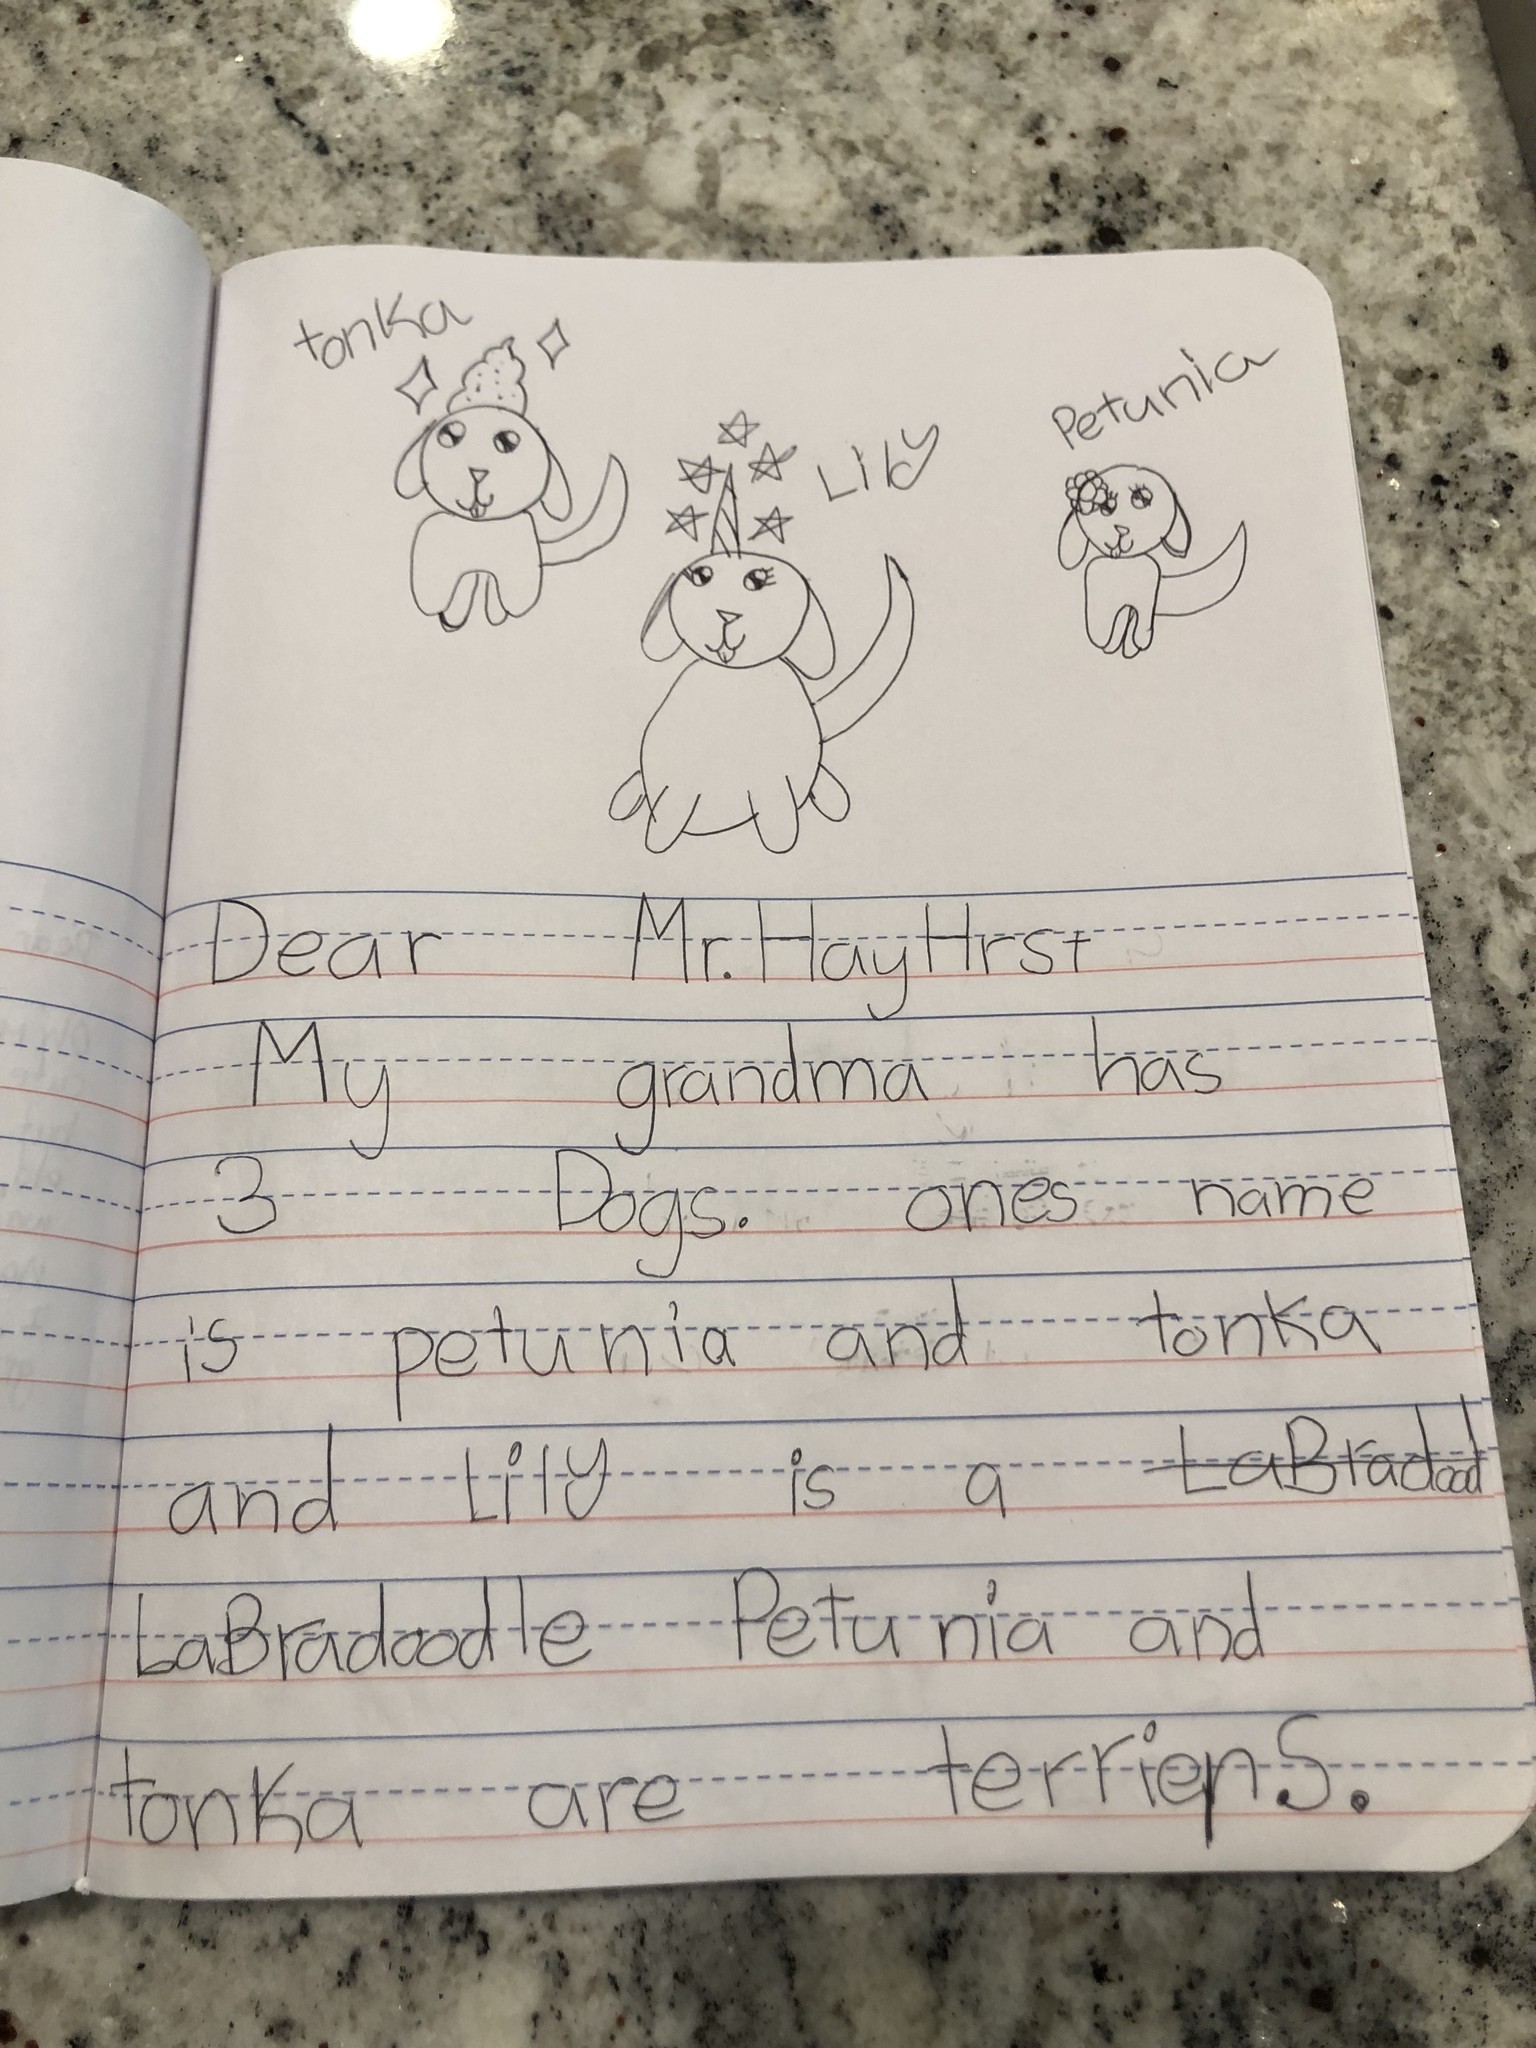 tonka
Lily
Petunia
Dear Mr. HayHrst
My grandma has
3 Dogs. ones name
is petunia and tonka
and Lily is a LaBradood
LaBradoodle Petunia and
tonka are terriers.